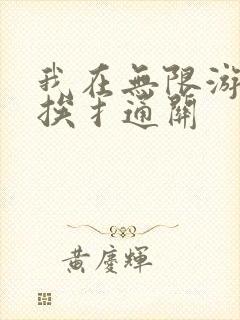 我在無限游
挨扌通關
黃慶輝